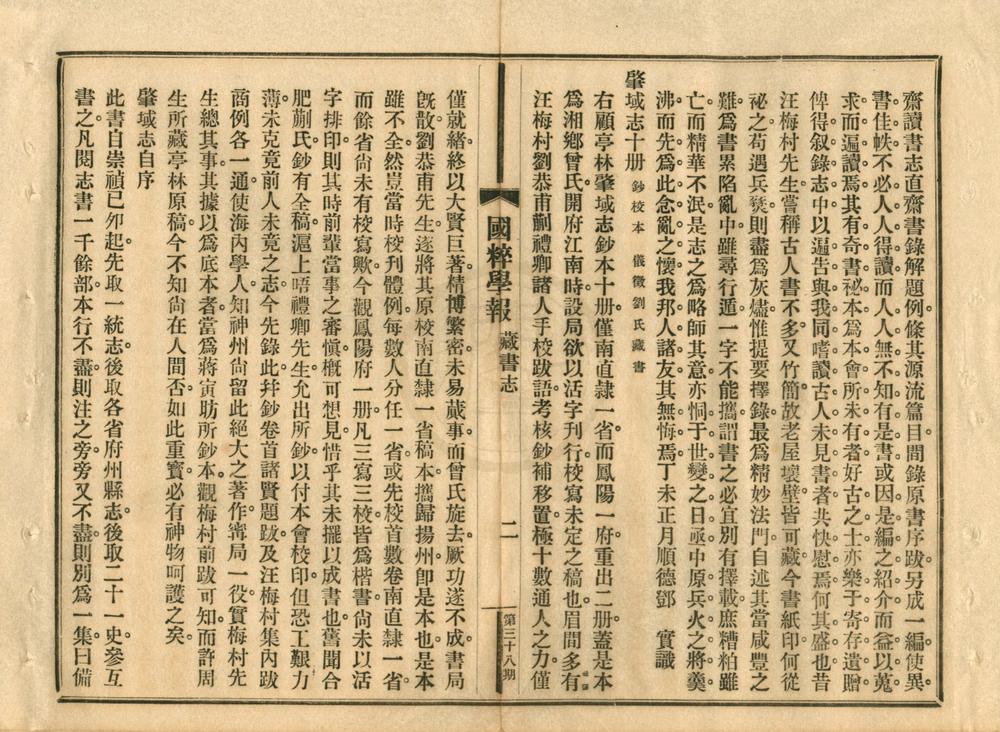 齋讀書志直齋書錄解題例條其源流篇目間錄原書序跋另成一編使異
書佳帙不必人人得讀而人人無不知有是書或因是編之紹介而益以蒐
求而遍讀焉其有奇書祕本爲本會所未有者好古之士亦樂于寄存遺贈
俾得叙錄志中以遍告與我同嗜讀古人未見書者共快慰焉何其盛也昔
汪梅村先生嘗稱古人書不多又竹簡故老屋壞壁皆可藏今書紙印何從
祕之苟遇兵燹則盡爲灰燼惟提要擇錄最爲精妙法門自述其當咸豐之
難爲書累陷亂中雖尋行遁一字不能攜謂書之必宜別有擇載庶糟粕雖
亡而精華不泯是志之爲略師其意亦恫于世變之日亟中原兵火之將羹
沸而先爲此念亂之懷我邦人諸友其無悔焉丁未正月順德鄧 實識
肇域志十册 鈔校本 儀徵劉氏藏書
右顧亭林肇域志鈔本十册僅南直隸一省而鳳陽一府重出二册蓋是本
爲湘鄉曾氏開府江南時設局欲以活字刊行校寫未定之稿也眉間多有
汪梅村劉恭甫蒯禮卿諸人手校跋語考核鈔補移置極十數通人之力僅
國粹學報 藏書志 二 第三十八期
僅就緒終以大賢巨著精博繁密未易蕆事而曾氏旋去厥功遂不成書局
旣散劉恭甫先生遂將其原校南直隸一省稿本攜歸揚州卽是本也是本
雖不全然豈當時校刊體例每數人分任一省或先校首數卷南直隸一省
而餘省尙未有校寫歟今觀鳳陽府一册凡三寫三校皆爲楷書尙未以活
字排印則其時前輩當事之審愼槪可想見惜乎其未擺以成書也舊聞合
肥蒯氏鈔有全稿滬上晤禮卿先生允出所鈔以付本會校印但恐工艱力
薄未克竟前人未竟之志今先錄此幷鈔卷首諸賢題跋及汪梅村集內跋
商例各一通使海內學人知神州尙留此絕大之著作甯局一役實梅村先
生總其事其據以爲底本者當爲蔣寅昉所鈔本觀梅村前跋可知而許周
生所藏亭林原稿今不知尙在人間否如此重寳必有神物呵護之矣
肇域志自序
此書自崇禎己夘起先取一統志後取各省府州縣志後取二十一史參互
書之凡閱志書一千餘部本行不盡則注之旁旁又不盡則別爲一集曰備